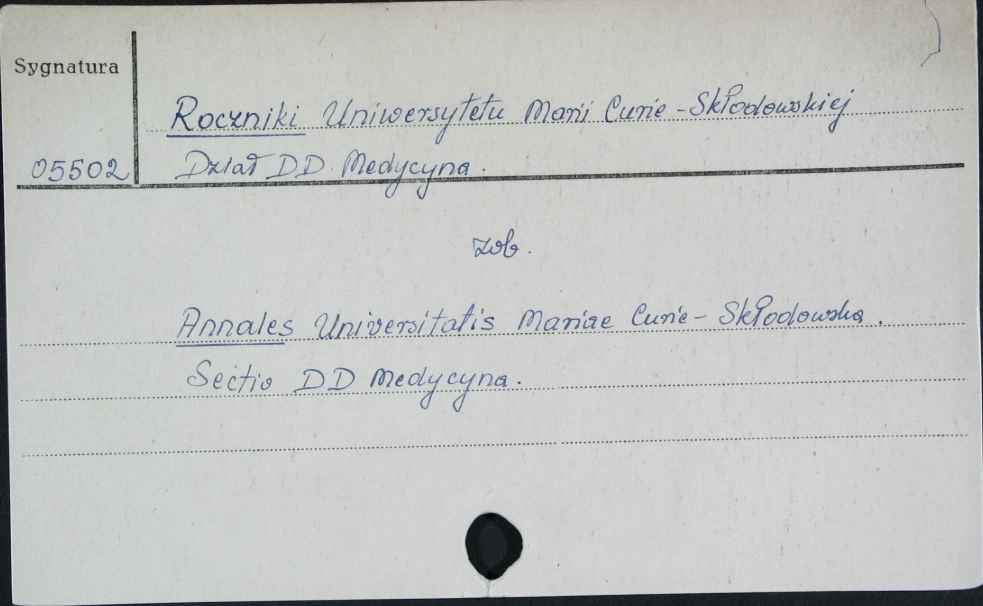 Sygnatura
Roczniki Uniwersytetu Marii Curie-Skłodowskiej
05502 Dział DD Medycyna.
zob.
Annales Universitatis Mariae Curie-Skłodowska.
Sectio DD Medycyna.